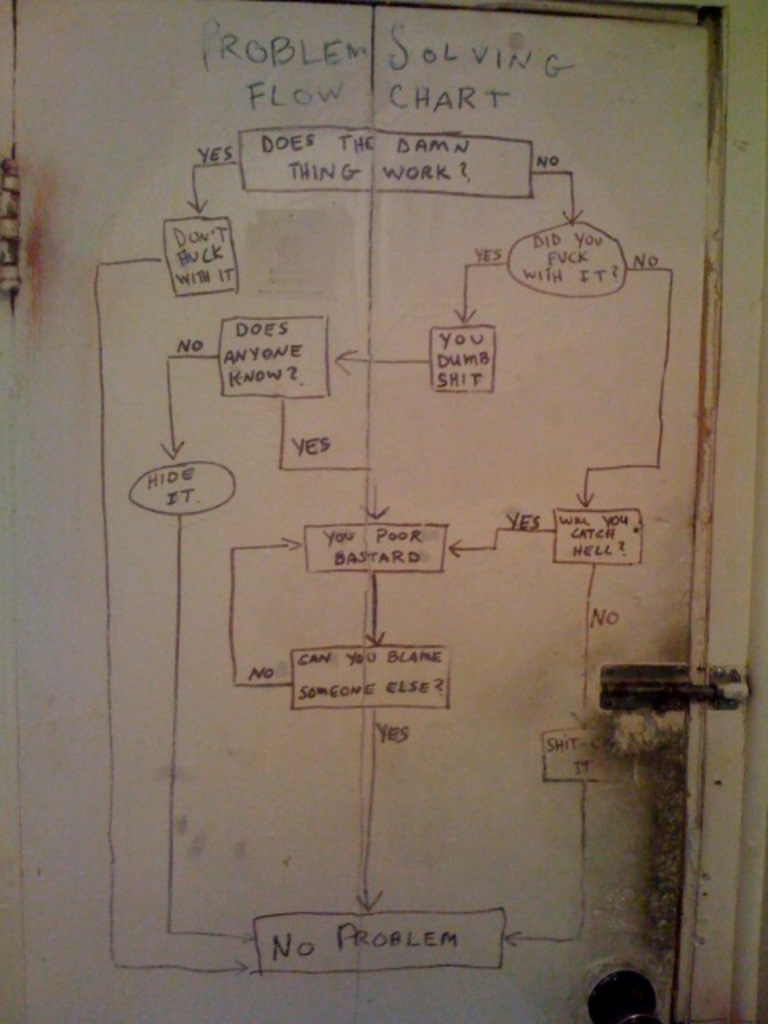 PROBLEM SOLVING
FLOW CHART
DOES THE DAMN
THING WORK?
YES
NO
DON'T
FUCK
WITH IT
DID YOU
FUCK
WITH IT?
YES
NO
YOU
DUMB
SHIT
DOES
ANYONE
KNOW?
NO
YES
HIDE
IT.
WILL YOU
CATCH
HELL?
YES
NO
YOU POOR
BASTARD
CAN YOU BLAME
SOMEONE ELSE?
NO
YES
IT
NO PROBLEM